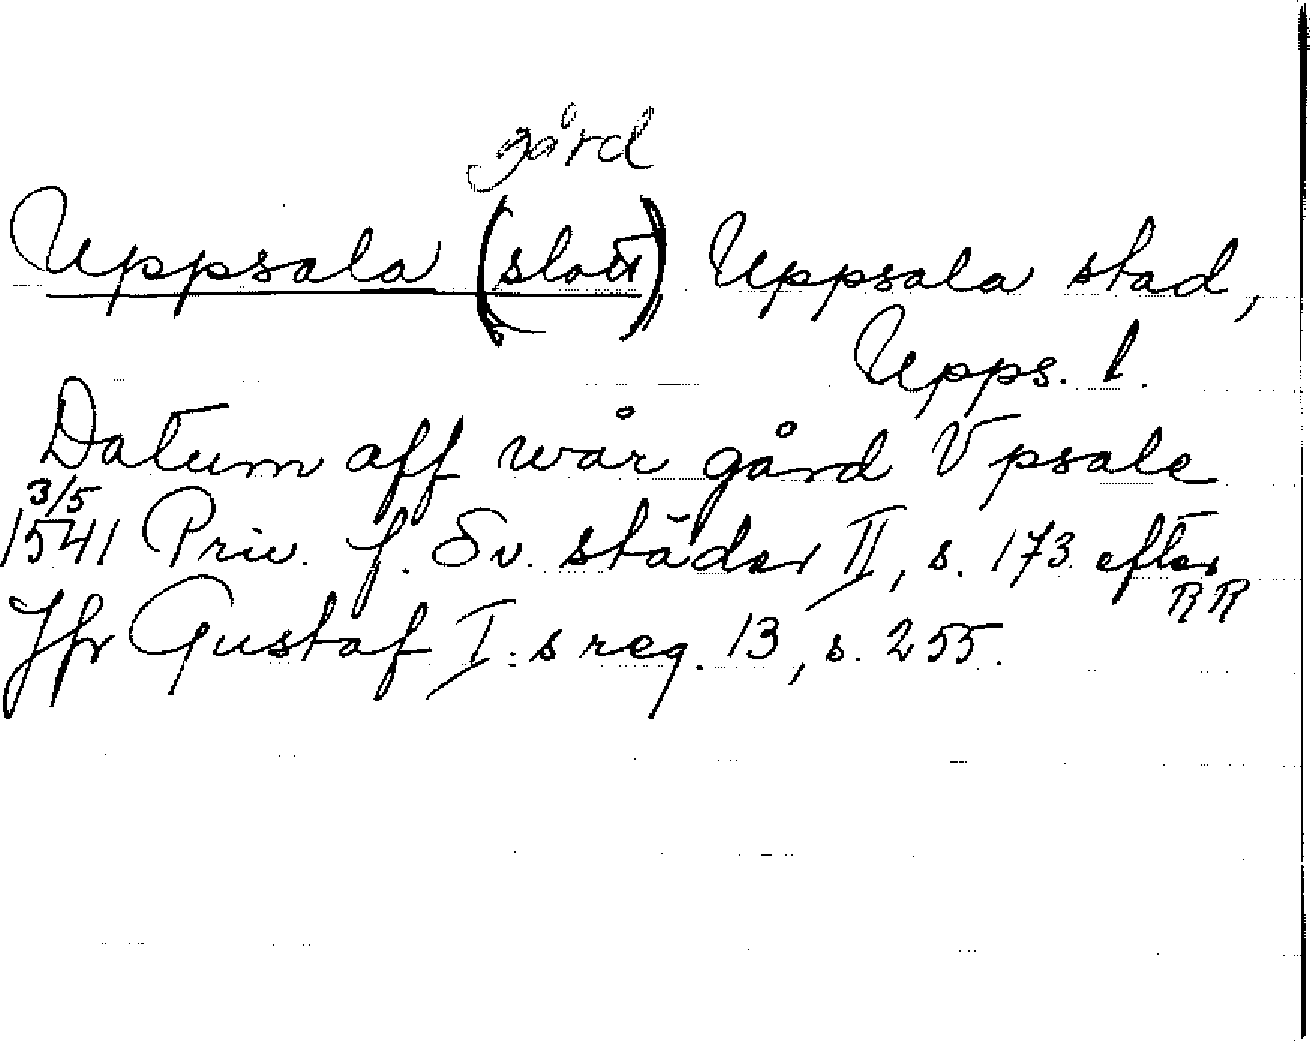 gård
Uppsala (slott) Uppsala stad,
Upps. l.
Datum aff wår gård Vpsale
3/5
1541 Priv. f. Sv. städer II, s. 173 efter
RR
Jfr Gustaf I:s reg. 13, s. 255.